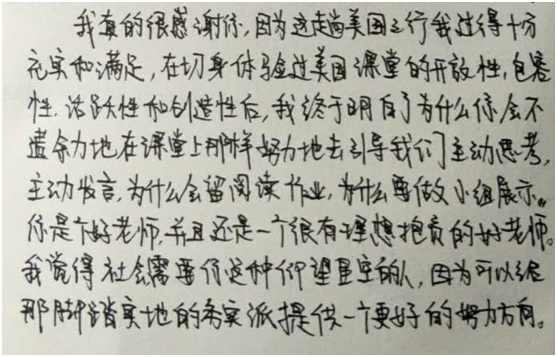 我真的很感谢你,因为这趟美国之行我过得十分
充实和满足,在切身体验过美国课堂的开放性,包容
性,活跃性和创造性后,我终于明白了为什么你会不
遗余力地在课堂上那样努力地去引导我们主动思考,
主动发言,为什么会留阅读作业,为什么要做小组展示。
你是个好老师,并且还是一个很有理想抱负的好老师。
我觉得社会需要你这种仰望星空的人,因为可以给
那脚踏实地的务实派提供一个更好的努力方向。